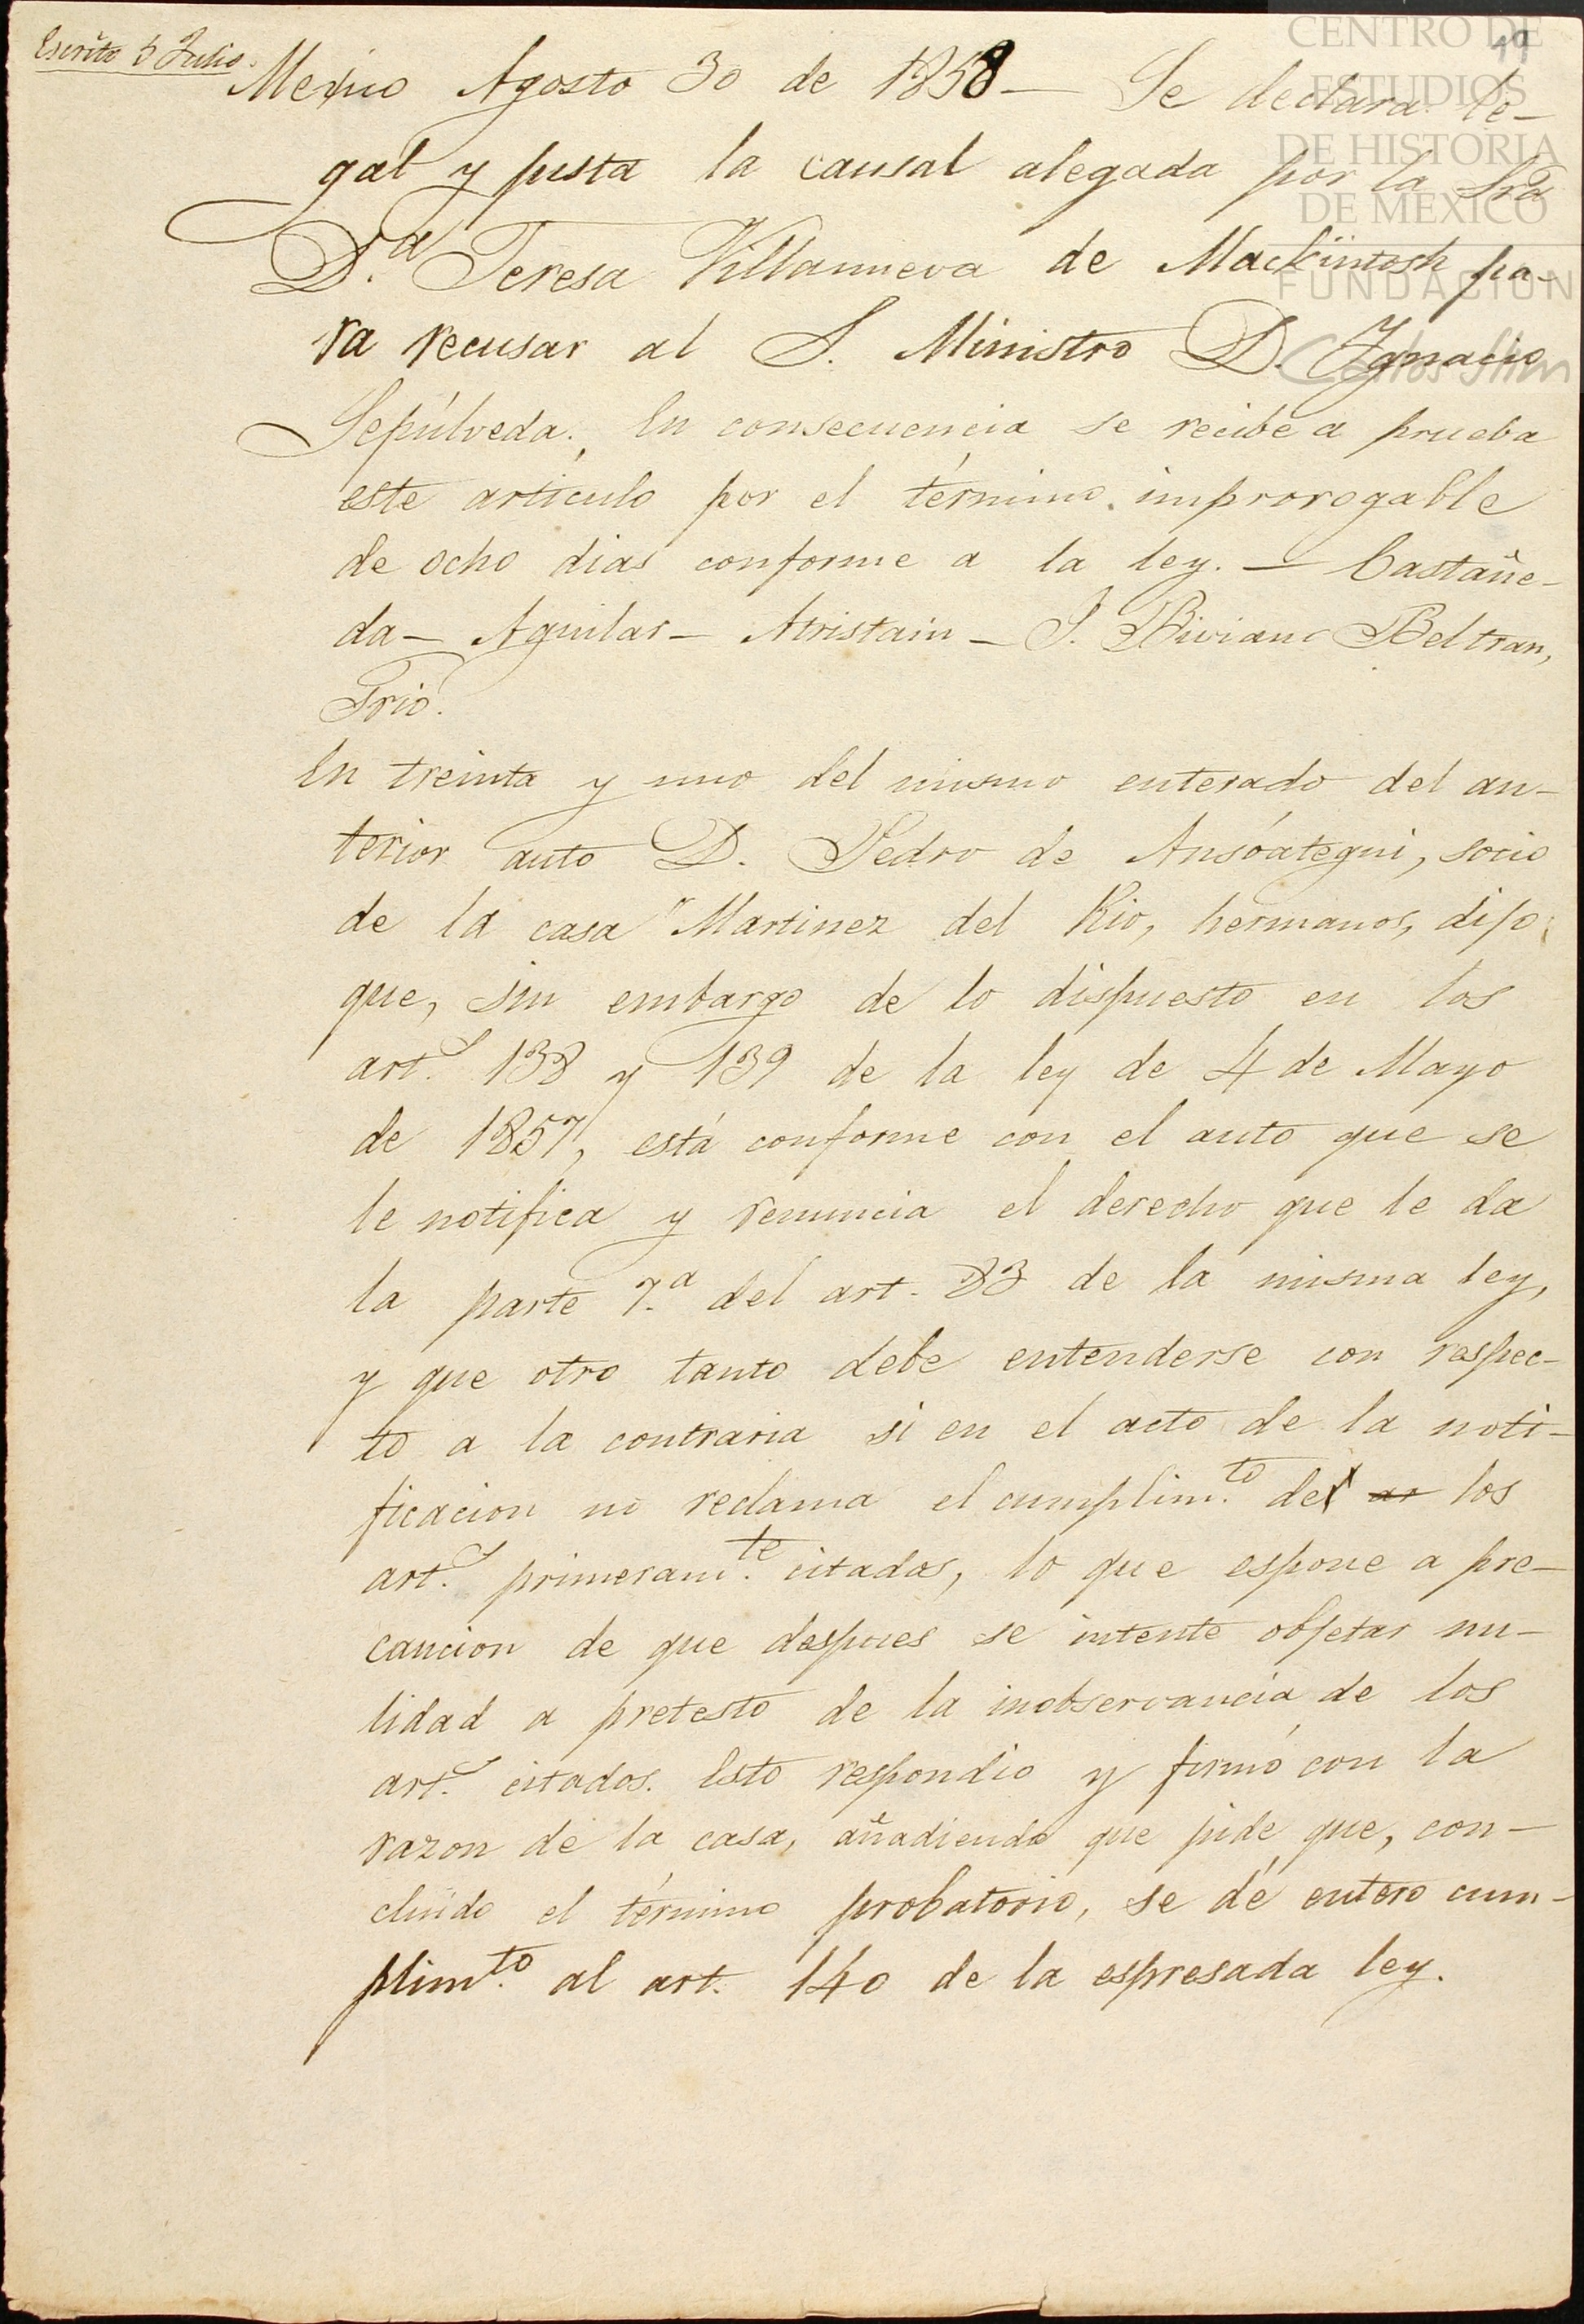 Escrito 5 Julio.
19
CENTRO DE
ESTUDIOS
DE HISTORIA
DE MEXICO
FUNDACIÓN
Carlos Slim
Mexico Agosto 30 de 1858 — Se declara le-
gal y justa la causal alegada por la Sra
D.ª Teresa Villanueva de Mackintosh pa-
ra recusar al S. Ministro D. Ygnacio
Sepúlveda. En consecuencia se recibe a prueba
este articulo por el término improrogable
de ocho dias conforme a la ley. — Castañe-
da — Aguilar — Atristain — J. Biviano Beltran,
Srio.
En treinta y uno del mismo enterado del an-
terior auto D. Pedro de Ansóategui, socio
de la casa "Martinez del Rio, hermanos, dijo
que, sin embargo de lo dispuesto en los
art.s 138 y 139 de la ley de 4 de Mayo
de 1857, está conforme con el auto que se
le notifica y renuncia el derecho que le da
la parte 7.ª del art. 83 de la misma ley,
y que otro tanto debe entenderse con respec-
to a la contraria si en el acto de la noti-
ficacion no reclama el cumplim.to de los
art.s primeram.te citados, lo que espone a pre-
caucion de que despues se intente objetar nu-
lidad a pretesto de la inobservancia de los
art.s citados. Esto respondio y firmó con la
razon de la casa, añadiendo que pide que, con-
cluido el término probatorio, se dé entero cum-
plim.to al art. 140 de la espresada ley.